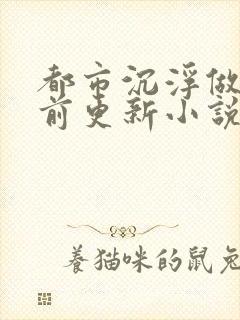 都市沉浮做
前更新小說
養貓咪的鼠兔